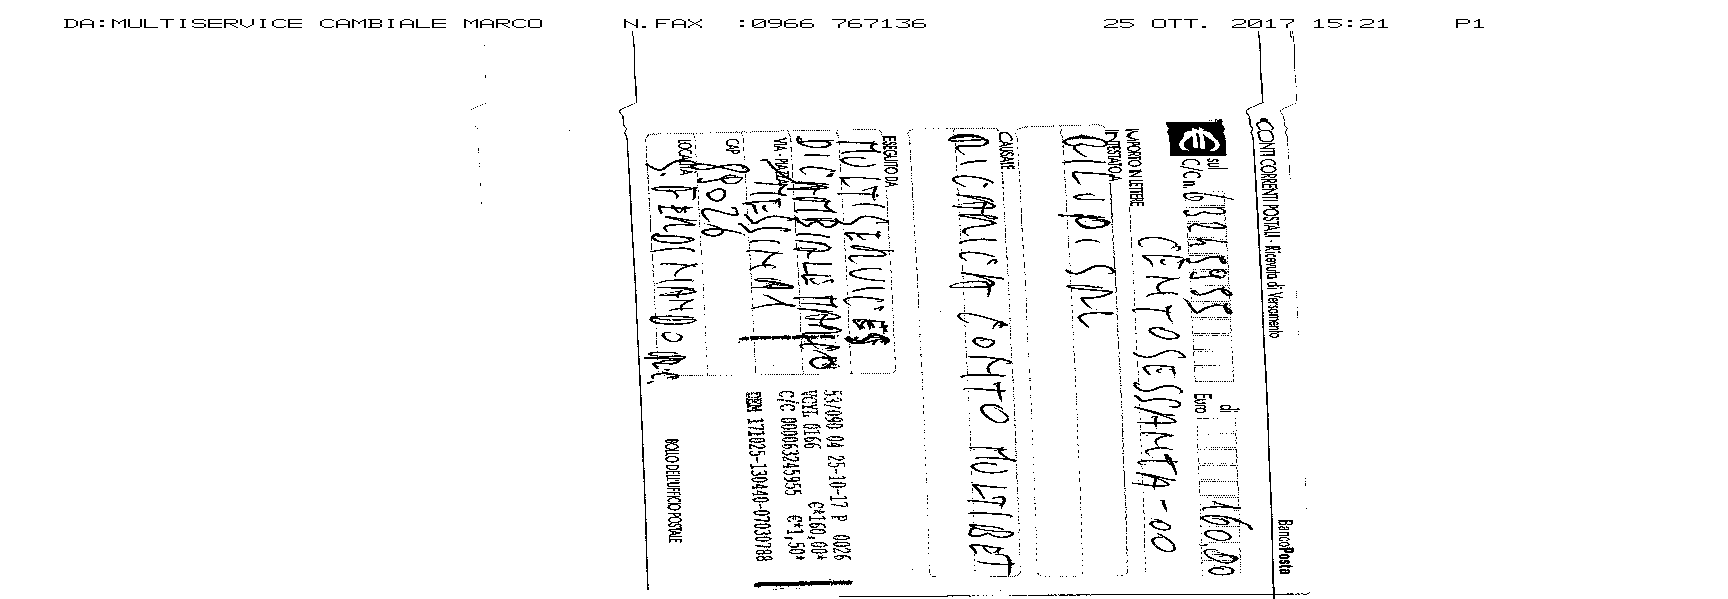 DA:MULTISERVICE CAMBIALE MARCO N.FAX :0966 767136 25 OTT. 2017 15:21 P1
CONTI CORRENTI POSTALI - Ricevuta di Versamento BancoPosta
€ sul C/C n. 63245955 di Euro 160,00
IMPORTO IN LETTERE CENTOSESSANTA-00
INTESTATO A
SRL
CAUSALE
RICARICA CONTO MULTIBET
ESEGUITO DA
MULTISERVICES
DI CAMBIALE MARCO
VIA - PIAZZA
CAP
89026
LOCALITÀ
S. FERDINANDO RC
53/090 04 25-10-17 P 0026
VCYL 0166 €*160,00*
C/C 000063245955 €*1,50*
171025-130440-07030788
BOLLO DELL'UFFICIO POSTALE